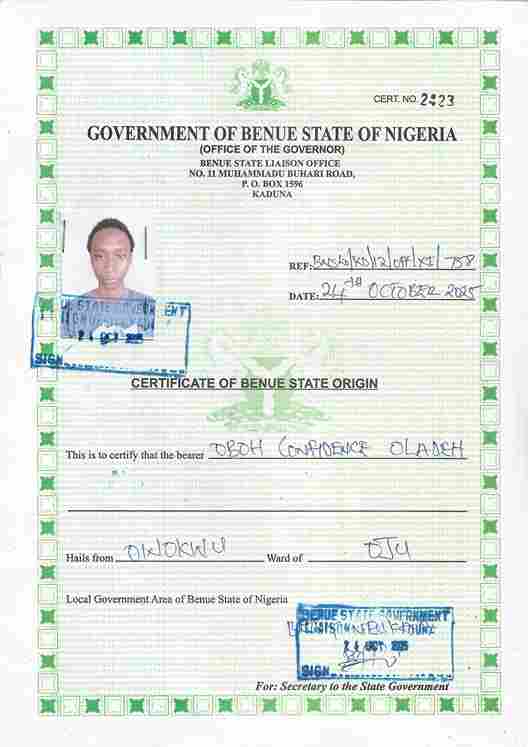 CERT. NO. 2423
GOVERNMENT OF BENUE STATE OF NIGERIA
(OFFICE OF THE GOVERNOR)
BENUE STATE LIAISON OFFICE
NO. 11 MUHAMMADU BUHARI ROAD,
P. O. BOX 1596
KADUNA
REF:
DATE: 24TH OCTOBER 2025
STATE
24 OCT 2025
SIGN
CERTIFICATE OF BENUE STATE ORIGIN
This is to certify that the bearer OBOH CONFIDENCE OLADEH
Hails from OWOKWU Ward of OJU
Local Government Area of Benue State of Nigeria
BENUE STATE GOVERNMENT
24 OCT 2025
SIGN
For: Secretary to the State Government